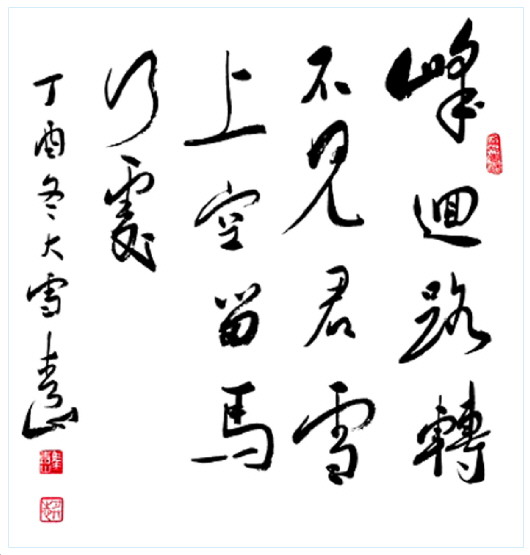 峰迴路轉
不見君雪
上空留馬
行處
丁酉冬大雪